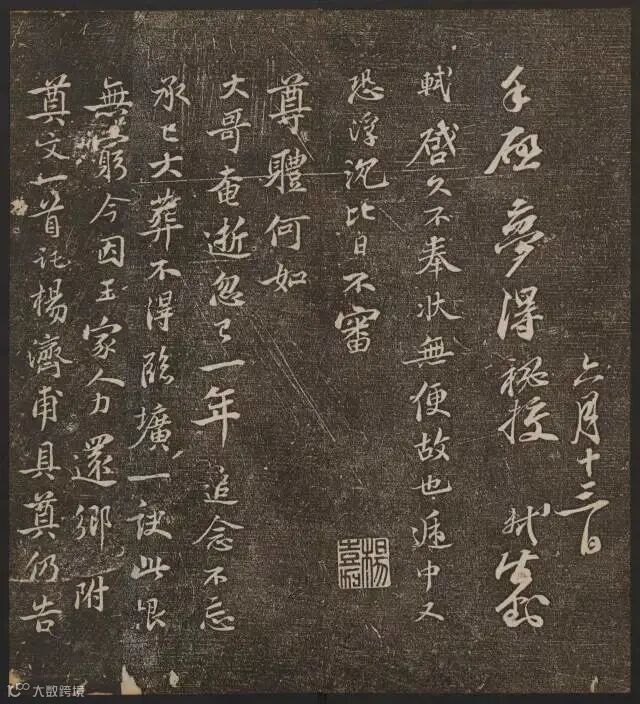 六月十三日
手啓夢得秘校 軾
軾啓久不奉狀無便故也遞中又
恐浮沉比日不審
尊體何如
大哥奄逝忽已一年追念不忘
承已大葬不得臨壙一訣此恨
無窮今因王家人力還鄉附
奠文一首託楊濟甫具奠仍告
大数跨境